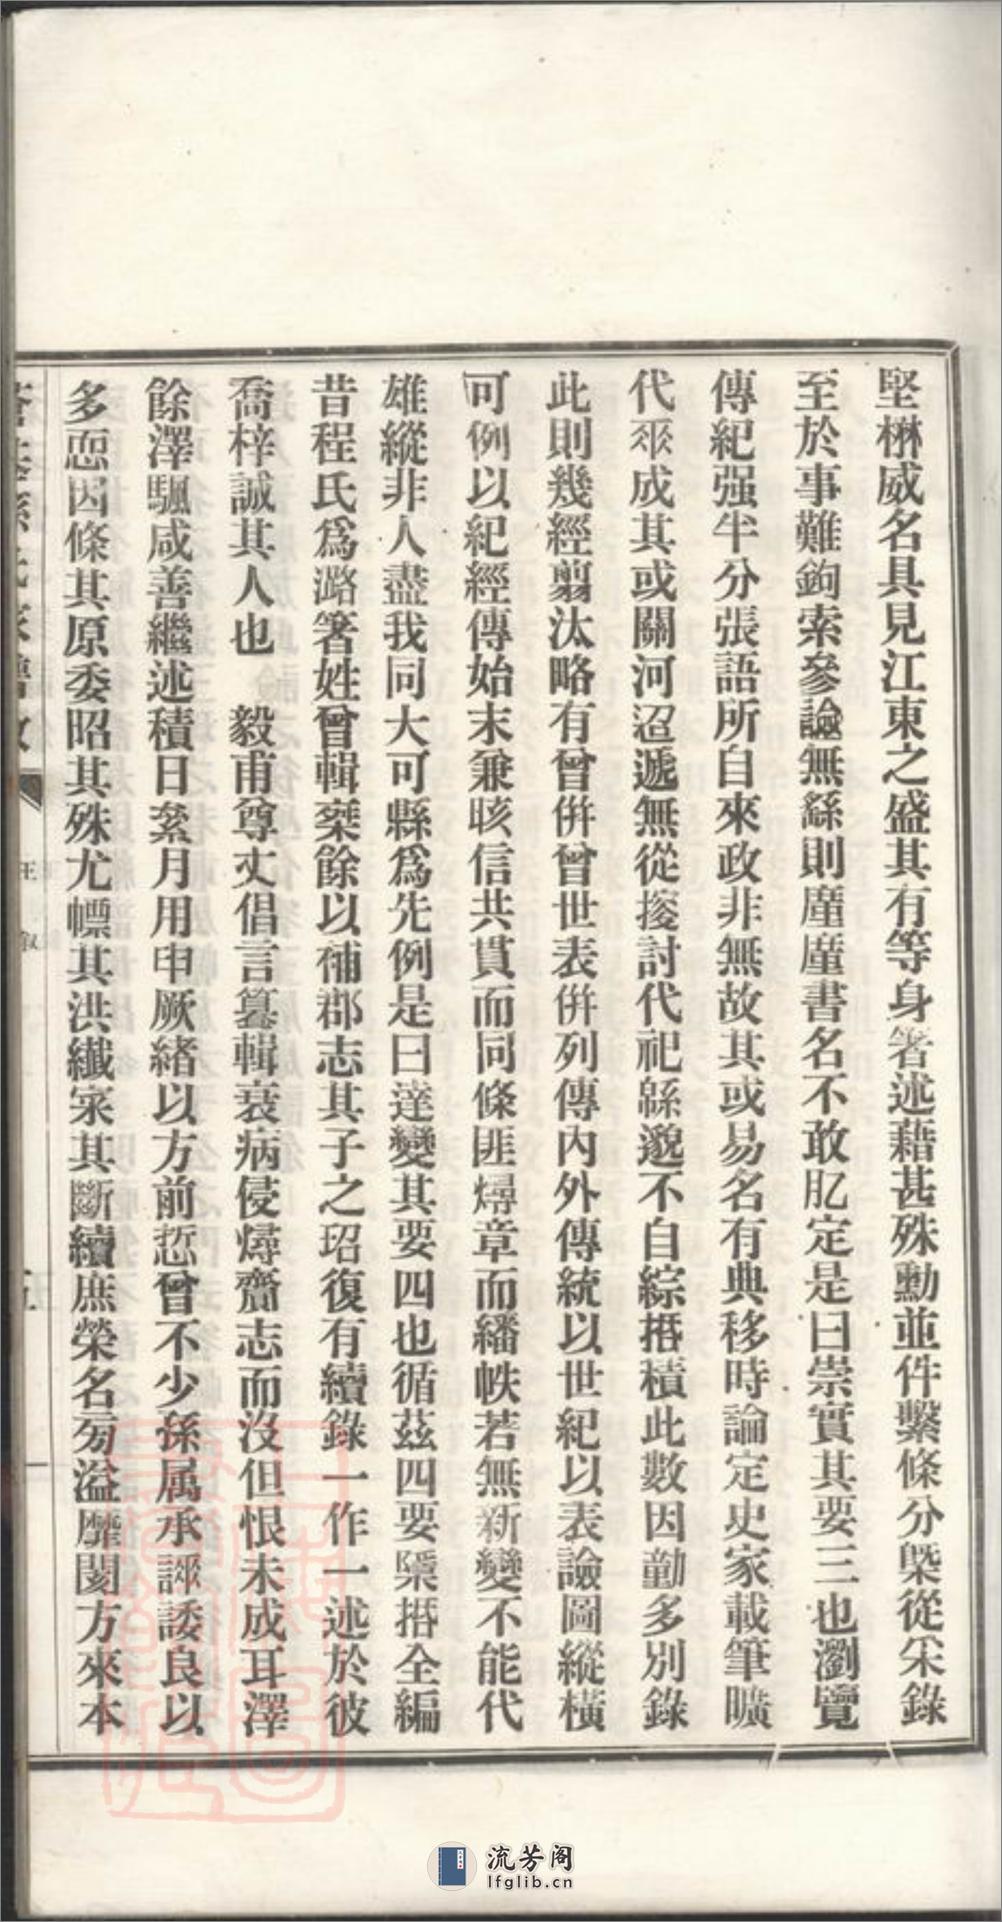 堅楙威名具見江東之盛其有等身箸述藉甚殊勳並件繫條分槩從采錄
至於事難鉤索參譣無繇則廑廑書名不敢肊定是曰崇實其要三也瀏覽
傳紀强半分張語所自來政非無故其或易名有典移時論定史家載筆曠
代乑成其或關河迢遞無從搜討代祀緜邈不自綜揩積此數因勤多別錄
此則幾經翦汰略有曾倂曾世表倂列傳內外傳統以世紀以表譣圖縱橫
可例以紀經傳始末兼晐信共貫而同條匪燖章而繙帙若無新變不能代
雄縱非人盡我同大可縣爲先例是曰達變其要四也循茲四要櫽揩全編
昔程氏爲潞箸姓曾輯桊餘以補郡志其子之玿復有續錄一作一述於彼
喬梓誠其人也　毅甫尊丈倡言纂輯衰病侵燖齎志而沒但恨未成耳澤
餘澤颿咸善繼述積日絫月用申厥緒以方前悊曾不少孫属承諈諉良以
多恧因條其原委昭其殊尤幖其洪纖宷其斷續庶榮名旁溢靡闋方來本
汪敘
五
流芳阁
lfglib.cn